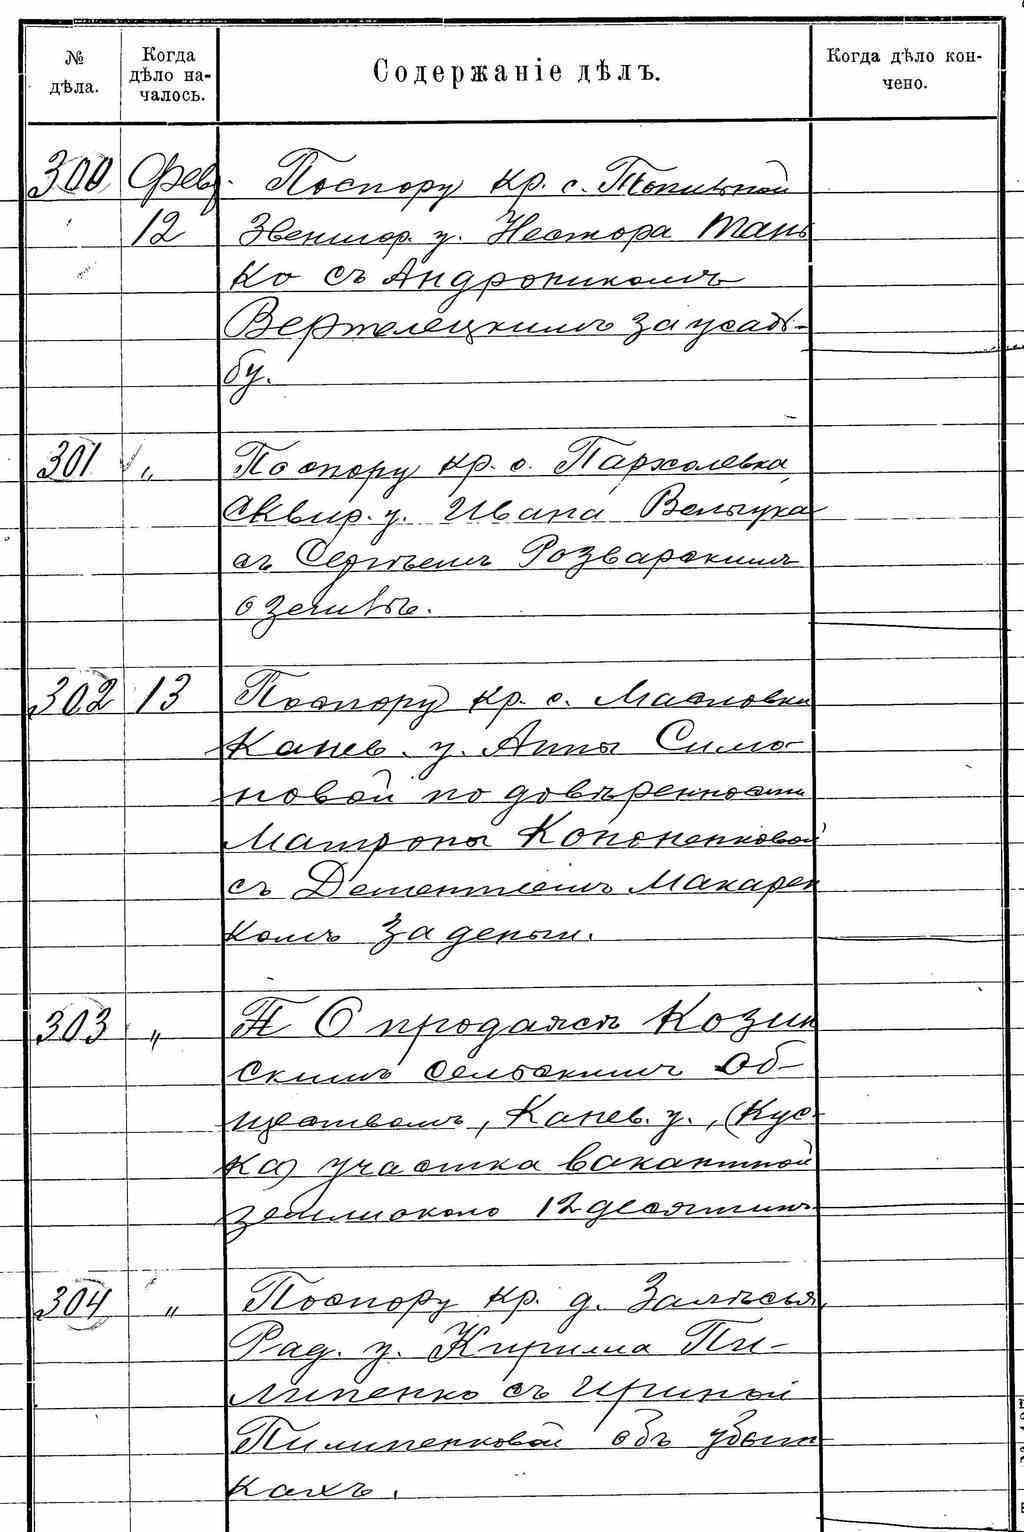 № дѣла. Когда дѣло на-чалось. Содержаніе дѣлъ. Когда дѣло кон-чено.
300 Февр. По спору кр. с. Топильной
12 Звенигор. у. Нестора Тань
ко съ Андроникомъ
Вертелецкимъ за усадь-
бу.
301 " По спору кр. с. Пархомовка,
Сквир. у. Ивана
съ Сергѣемъ Розварскимъ
о землѣ.
302 13 По спору кр. с. Масловки
Канев. у. Анны Симо-
новой по довѣренности
Матроны Кононенковой
съ Дементіемъ Макарен
комъ за деньги.
303 " О продажѣ Козин
скимъ сельскимъ Об-
ществомъ, Канев. у., (Кус-
ка) участка вакантной
земли около 12 десятинъ
304 " По спору кр. д. Залѣсья,
Рад. у. Кирилла Пи-
липенко съ Ириной
Пилипенковой объ убыт-
кахъ.